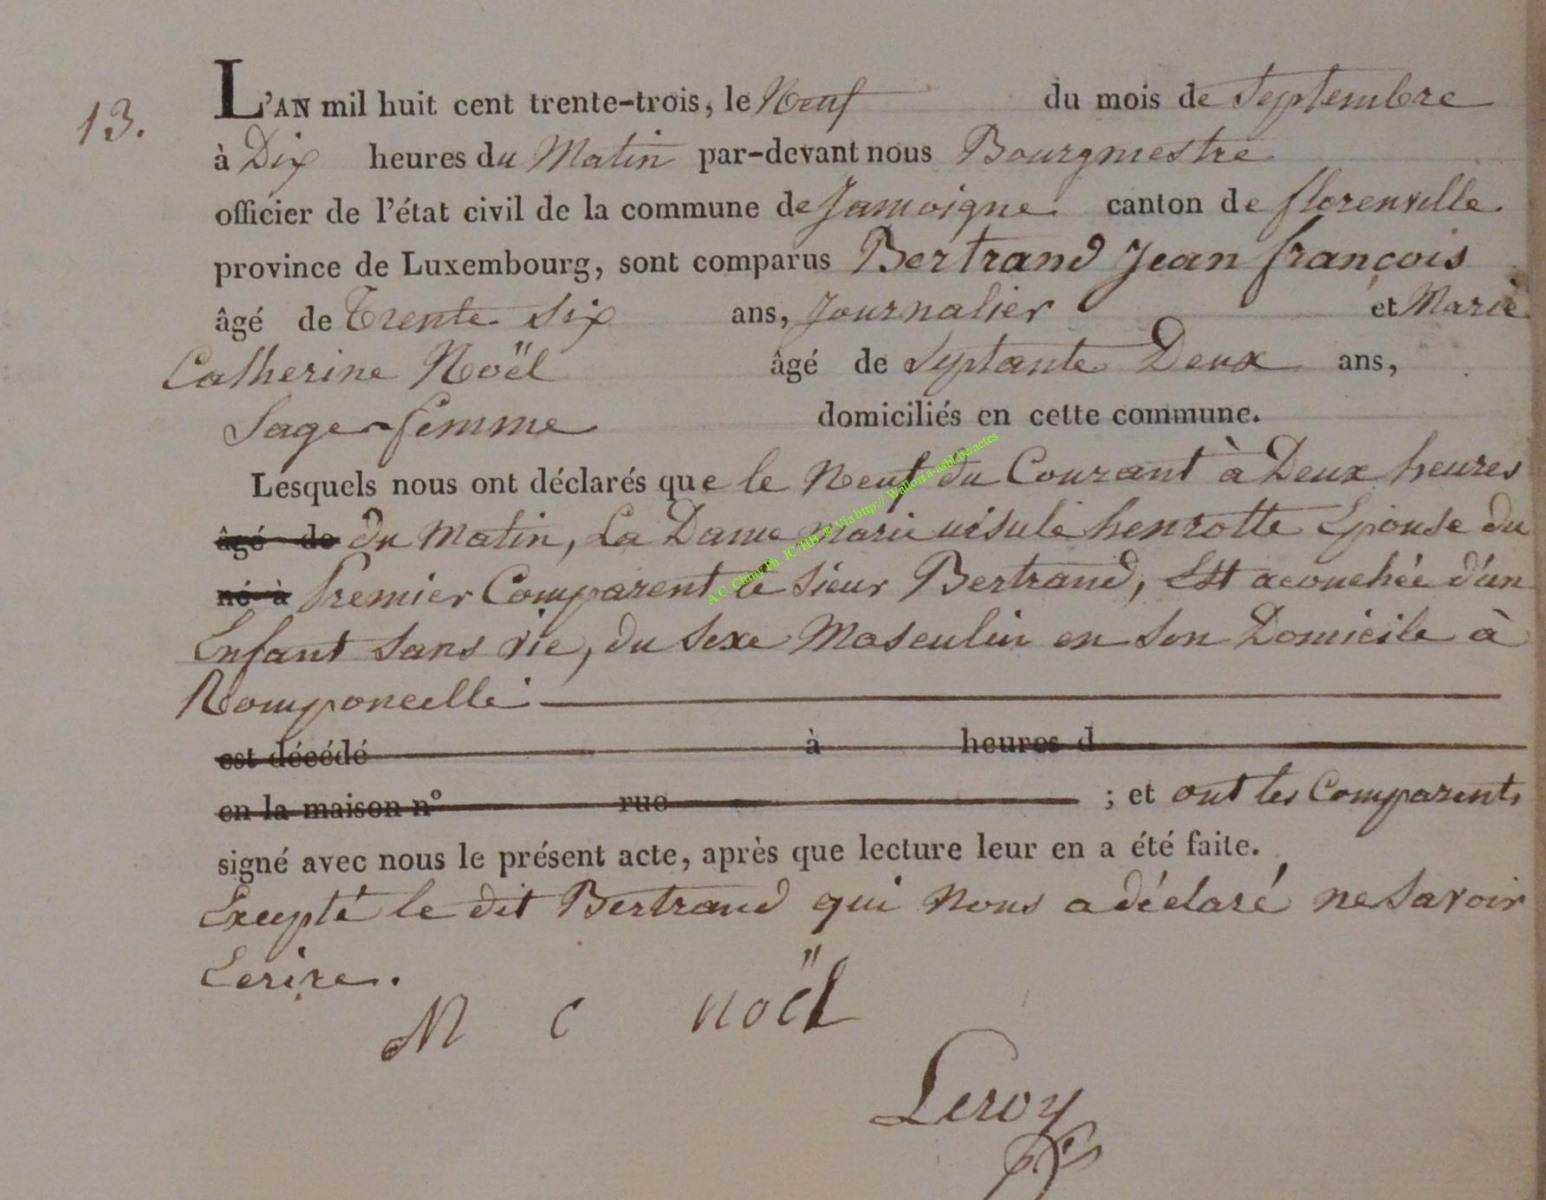 13.
L'AN mil huit cent trente-trois, le Neuf du mois de Septembre
à Dix heures du Matin par-devant nous Bourgmestre
officier de l'état civil de la commune de Jamoigne canton de florenville
province de Luxembourg, sont comparus Bertrand Jean françois
âgé de Trente Six ans, Journalier et Marie
Catherine Noël âgé de Septante Deux ans,
Sage-femme domiciliés en cette commune.
Lesquels nous ont déclarés que le Neuf du Courant à Deux heures
âgé de du Matin, La Dame Marie henrotte Epouse du
né à Premier Comparent le Sieur Bertrand, Est acouchée d'un
Enfant Sans vie, du Sexe Masculin en Son Domicile à
Romponcelle
est décédé à heures d
en la maison n° rue ; et ont les Comparents
signé avec nous le présent acte, après que lecture leur en a été faite.
Excepté le dit Bertrand qui Nous a déclaré ne Savoir
Ecrire.
M C noël
Leroy